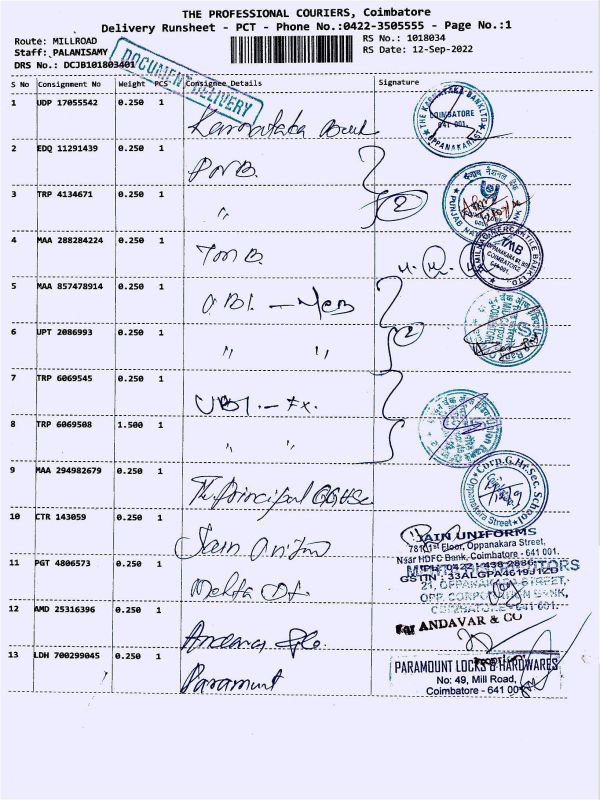 THE PROFESSIONAL COURIERS, Coimbatore
Delivery Runsheet - PCT - Phone No.:0422-3505555 - Page No.:1
Route: MILLROAD
Staff: PALANISAMY
DRS No.: DCJB101803401
RS No.: 1018034
RS Date: 12-Sep-2022
DOCUMENT DELIVERY
S No Consignment No Weight PCS Consignee Details Signature
1 UDP 17055542 0.250 1 Karnataka Bank
THE KARNATAKA BANK LTD
COIMBATORE
641 001
OPPANAKARA ST
2 EDQ 11291439 0.250 1 PNB.
3 TRP 4134671 0.250 1 "
2
पंजाब नैशनल बैंक
PUNJAB NATIONAL BANK
4 MAA 288284224 0.250 1 TMB
TAMILNAD MERCANTILE BANK LTD.
TMB
COIMBATORE
5 MAA 857478914 0.250 1 UBI. -
6 UPT 2086993 0.250 1 " "
2
7 TRP 6069545 0.250 1 UBI. - Fx.
8 TRP 6069508 1.500 1 " "
9 MAA 294982679 0.250 1 The Principal
Corp.G.Hr.Sec. School
Oppanakara Street
10 CTR 143059 0.250 1 Jain Uniform
JAIN UNIFORMS
781, 1st Floor, Oppanakara Street,
Near HDFC Bank, Coimbatore - 641 001.
PH: 0422 - 438 2886
GSTIN : 33ALGPA4619J1ZD
11 PGT 4806573 0.250 1 Mehta
21, OPPANAKARA STREET,
OPP. CORPORATION BANK,
COIMBATORE - 641 001.
12 AMD 25316396 0.250 1 Andavar & Co.
For ANDAVAR & CO
13 LDH 700299045 0.250 1 Paramount
PARAMOUNT LOCKS & HARDWARES
No: 49, Mill Road,
Coimbatore - 641 001